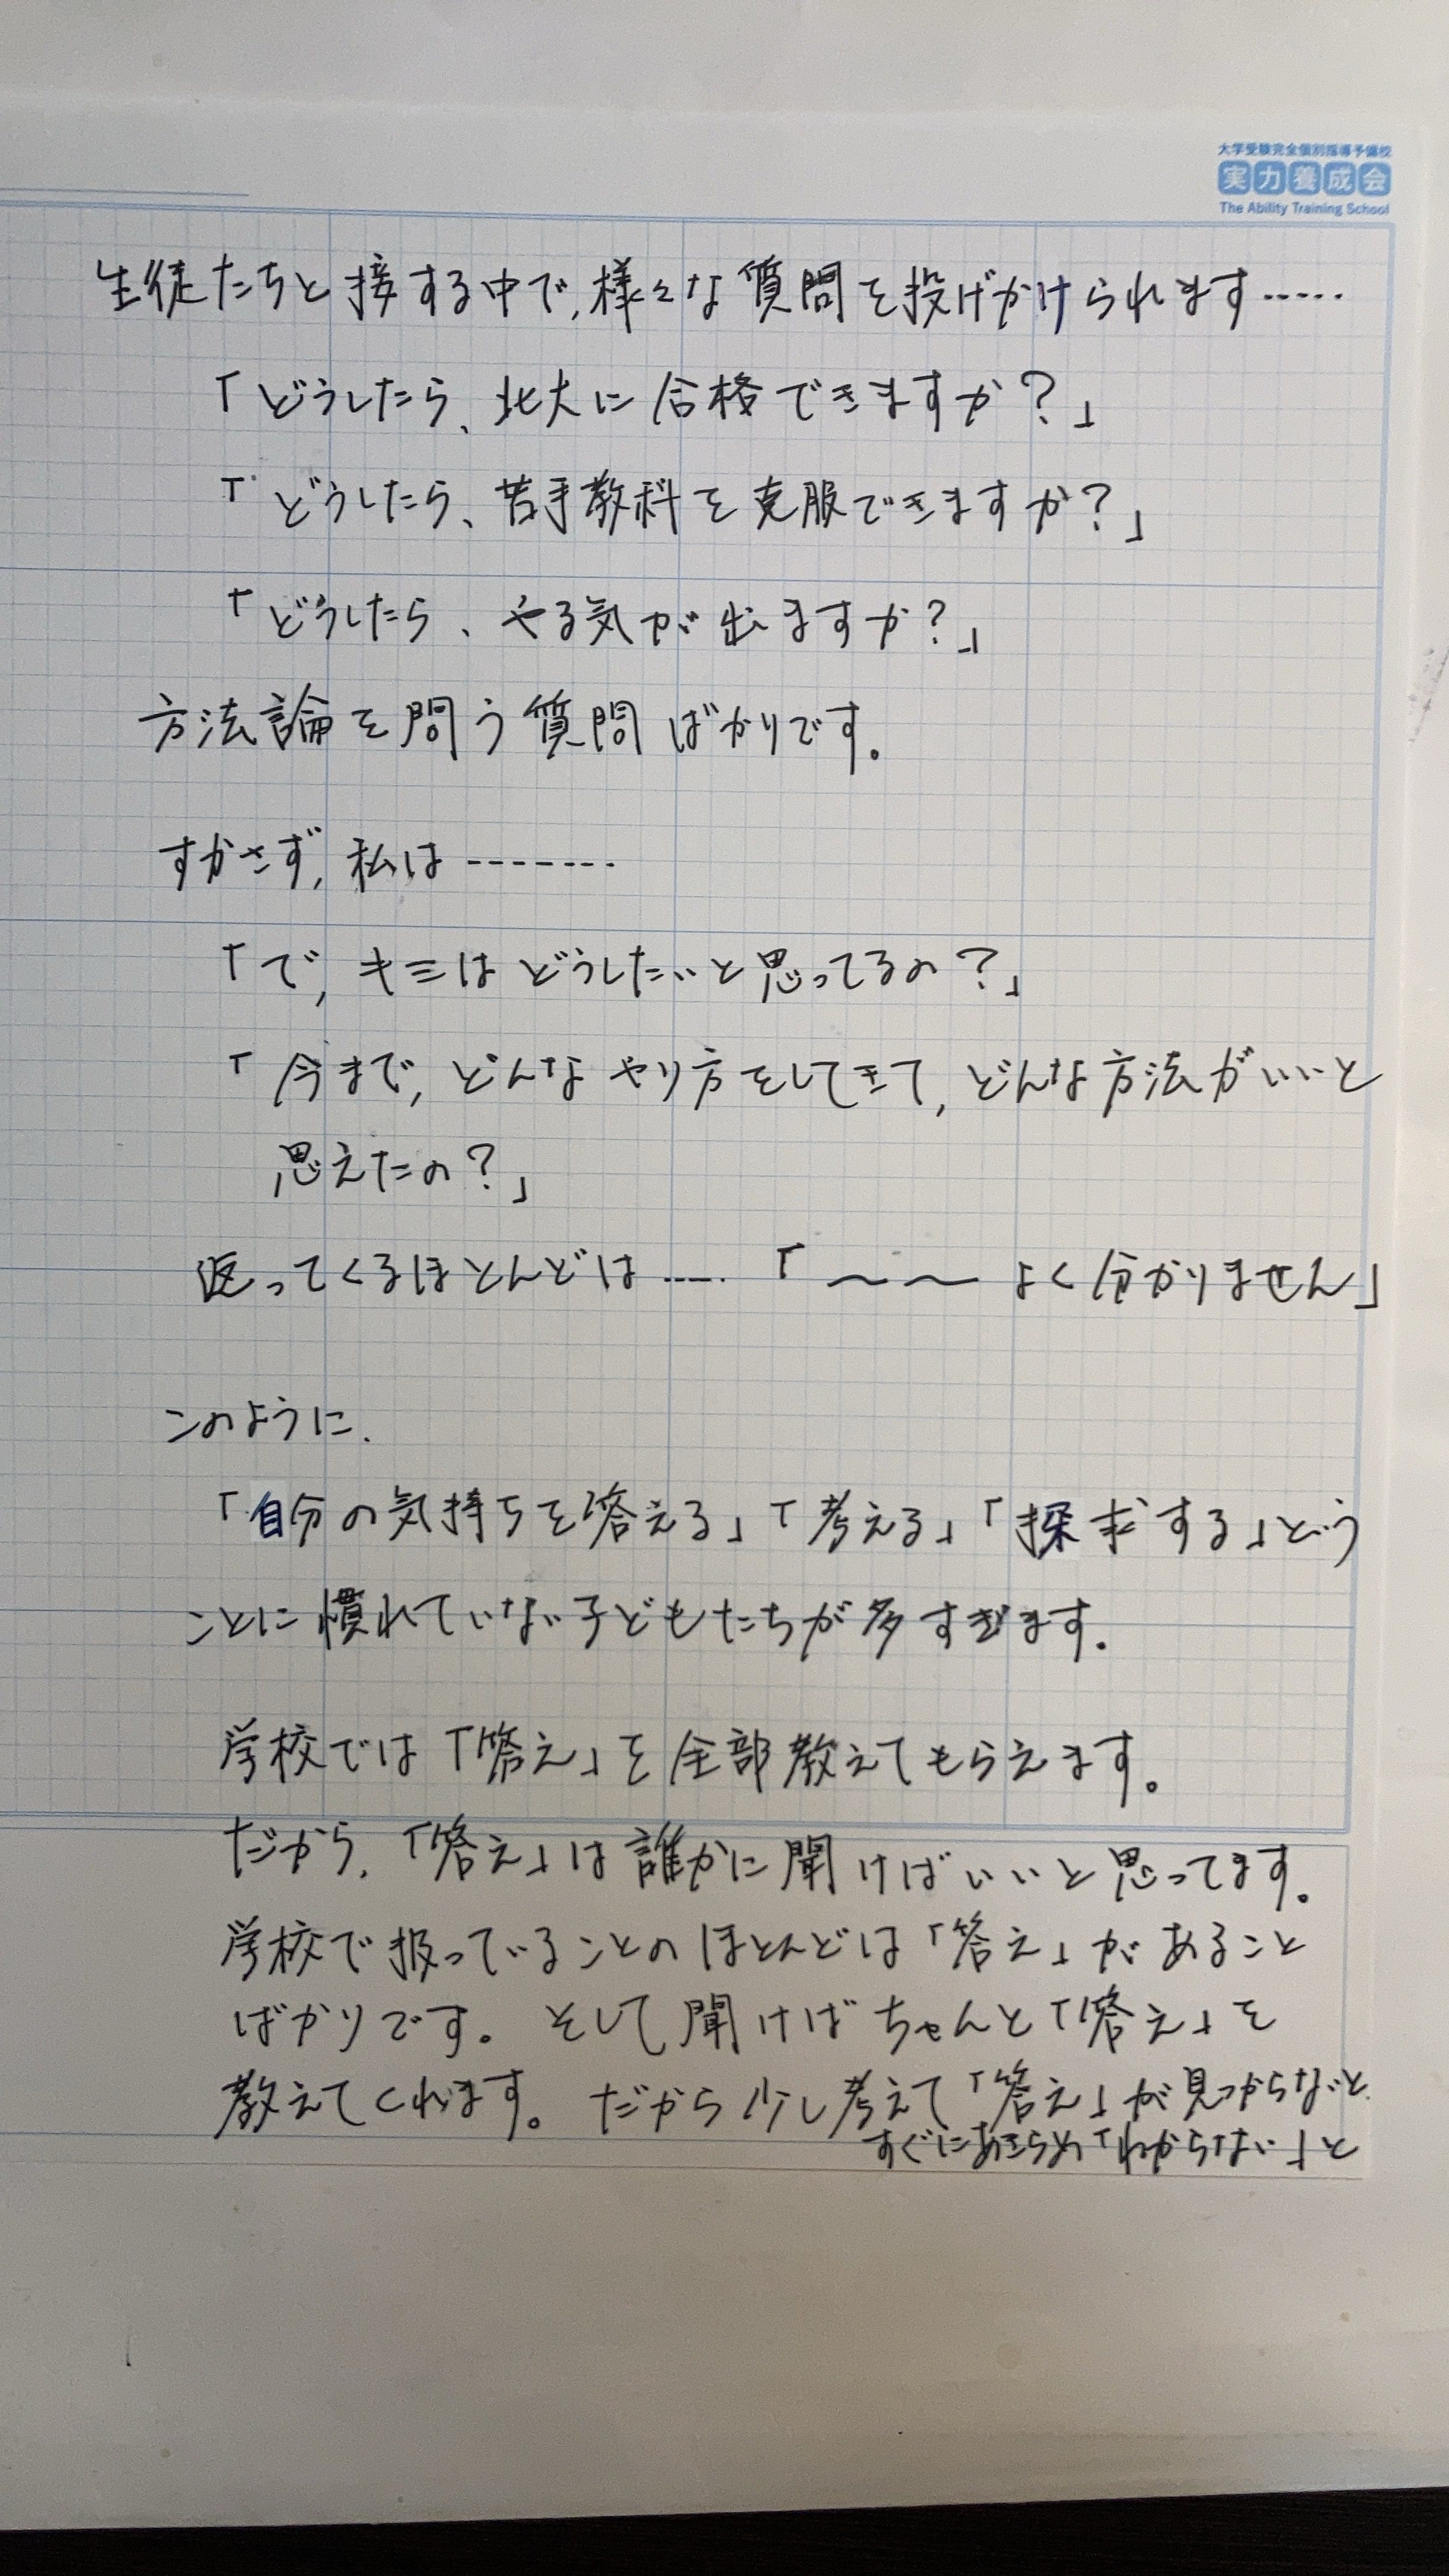 大学受験完全個別指導予備校
実力養成会
The Ability Training School
生徒たちと接する中で,様々な質問を投げかけられます……
「どうしたら、北大に合格できますか？」
「どうしたら、苦手教科を克服できますか？」
「どうしたら、やる気が出ますか？」
方法論を問う質問ばかりです。
すかさず,私は-------
「で,キミはどうしたいと思ってるの？」
「今まで,どんなやり方をしてきて,どんな方法がいいと
思えたの？」
返ってくるほとんどは……「〜〜よく分かりません」
このように.
「自分の気持ちを答える」「考える」「探求する」という
ことに慣れていない子どもたちが多すぎます.
学校では「答え」を全部教えてもらえます。
だから,「答え」は誰かに聞けばいいと思ってます。
学校で扱っていることのほとんどは「答え」があること
ばかりです。そして聞けばちゃんと「答え」を
教えてくれます。だから少し考えて「答え」が見つからないと
すぐにあきらめ「わからない」と